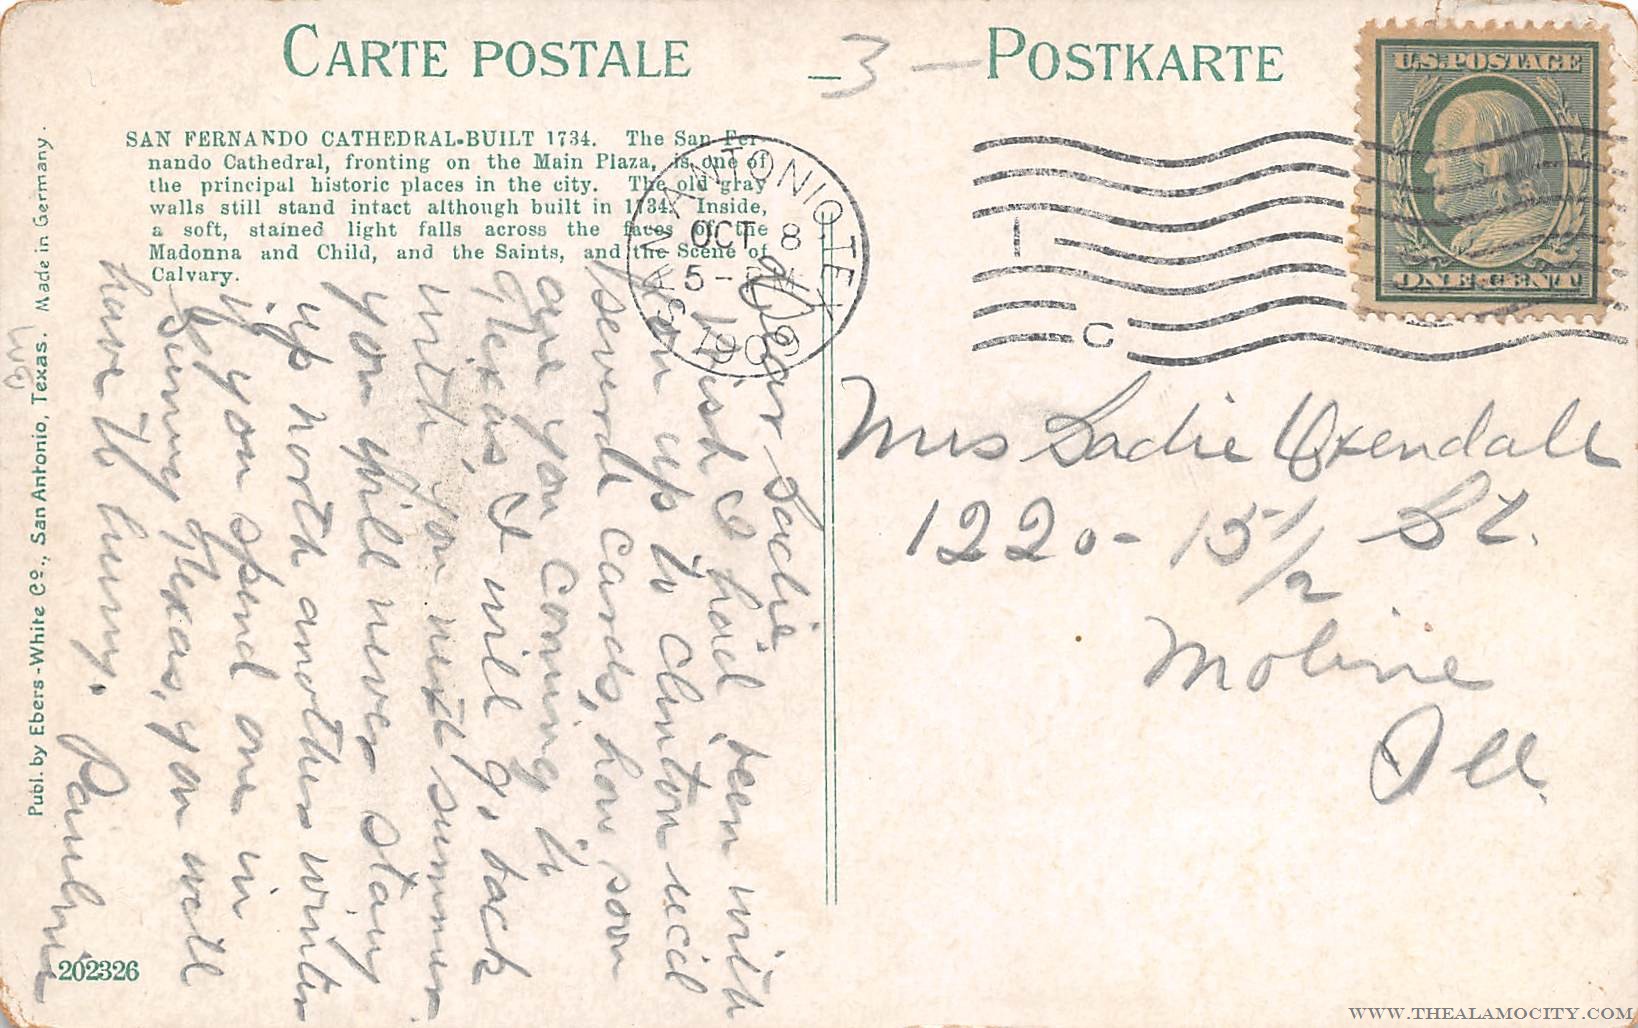 CARTE POSTALE
3
POSTKARTE
U.S. POSTAGE
ONE CENT
SAN ANTONIO, TEX.
OCT 8
5 - PM
1909
I
C
SAN FERNANDO CATHEDRAL-BUILT 1734. The San Fer-
nando Cathedral, fronting on the Main Plaza, is one of
the principal historic places in the city. The old gray
walls still stand intact although built in 1734. Inside,
a soft, stained light falls across the faces of the
Madonna and Child, and the Saints, and the Scene of
Calvary.
Dear Sadie
Wish I had been with
you up to Clinton recid
severel cards, how soon
are you coming to
Texas, I will go back
with you next summer
you will never stay
up north another winter
if you spend one in
Sunny Texas, you will
have to hurry.
Pauline
Mrs Sadie Oxendall
1220 - 15 1/2 St.
Moline
Ill.
Publ. by Ebers-White Co., San Antonio, Texas. Made in Germany.
202326
WWW.THEALAMOCITY.COM